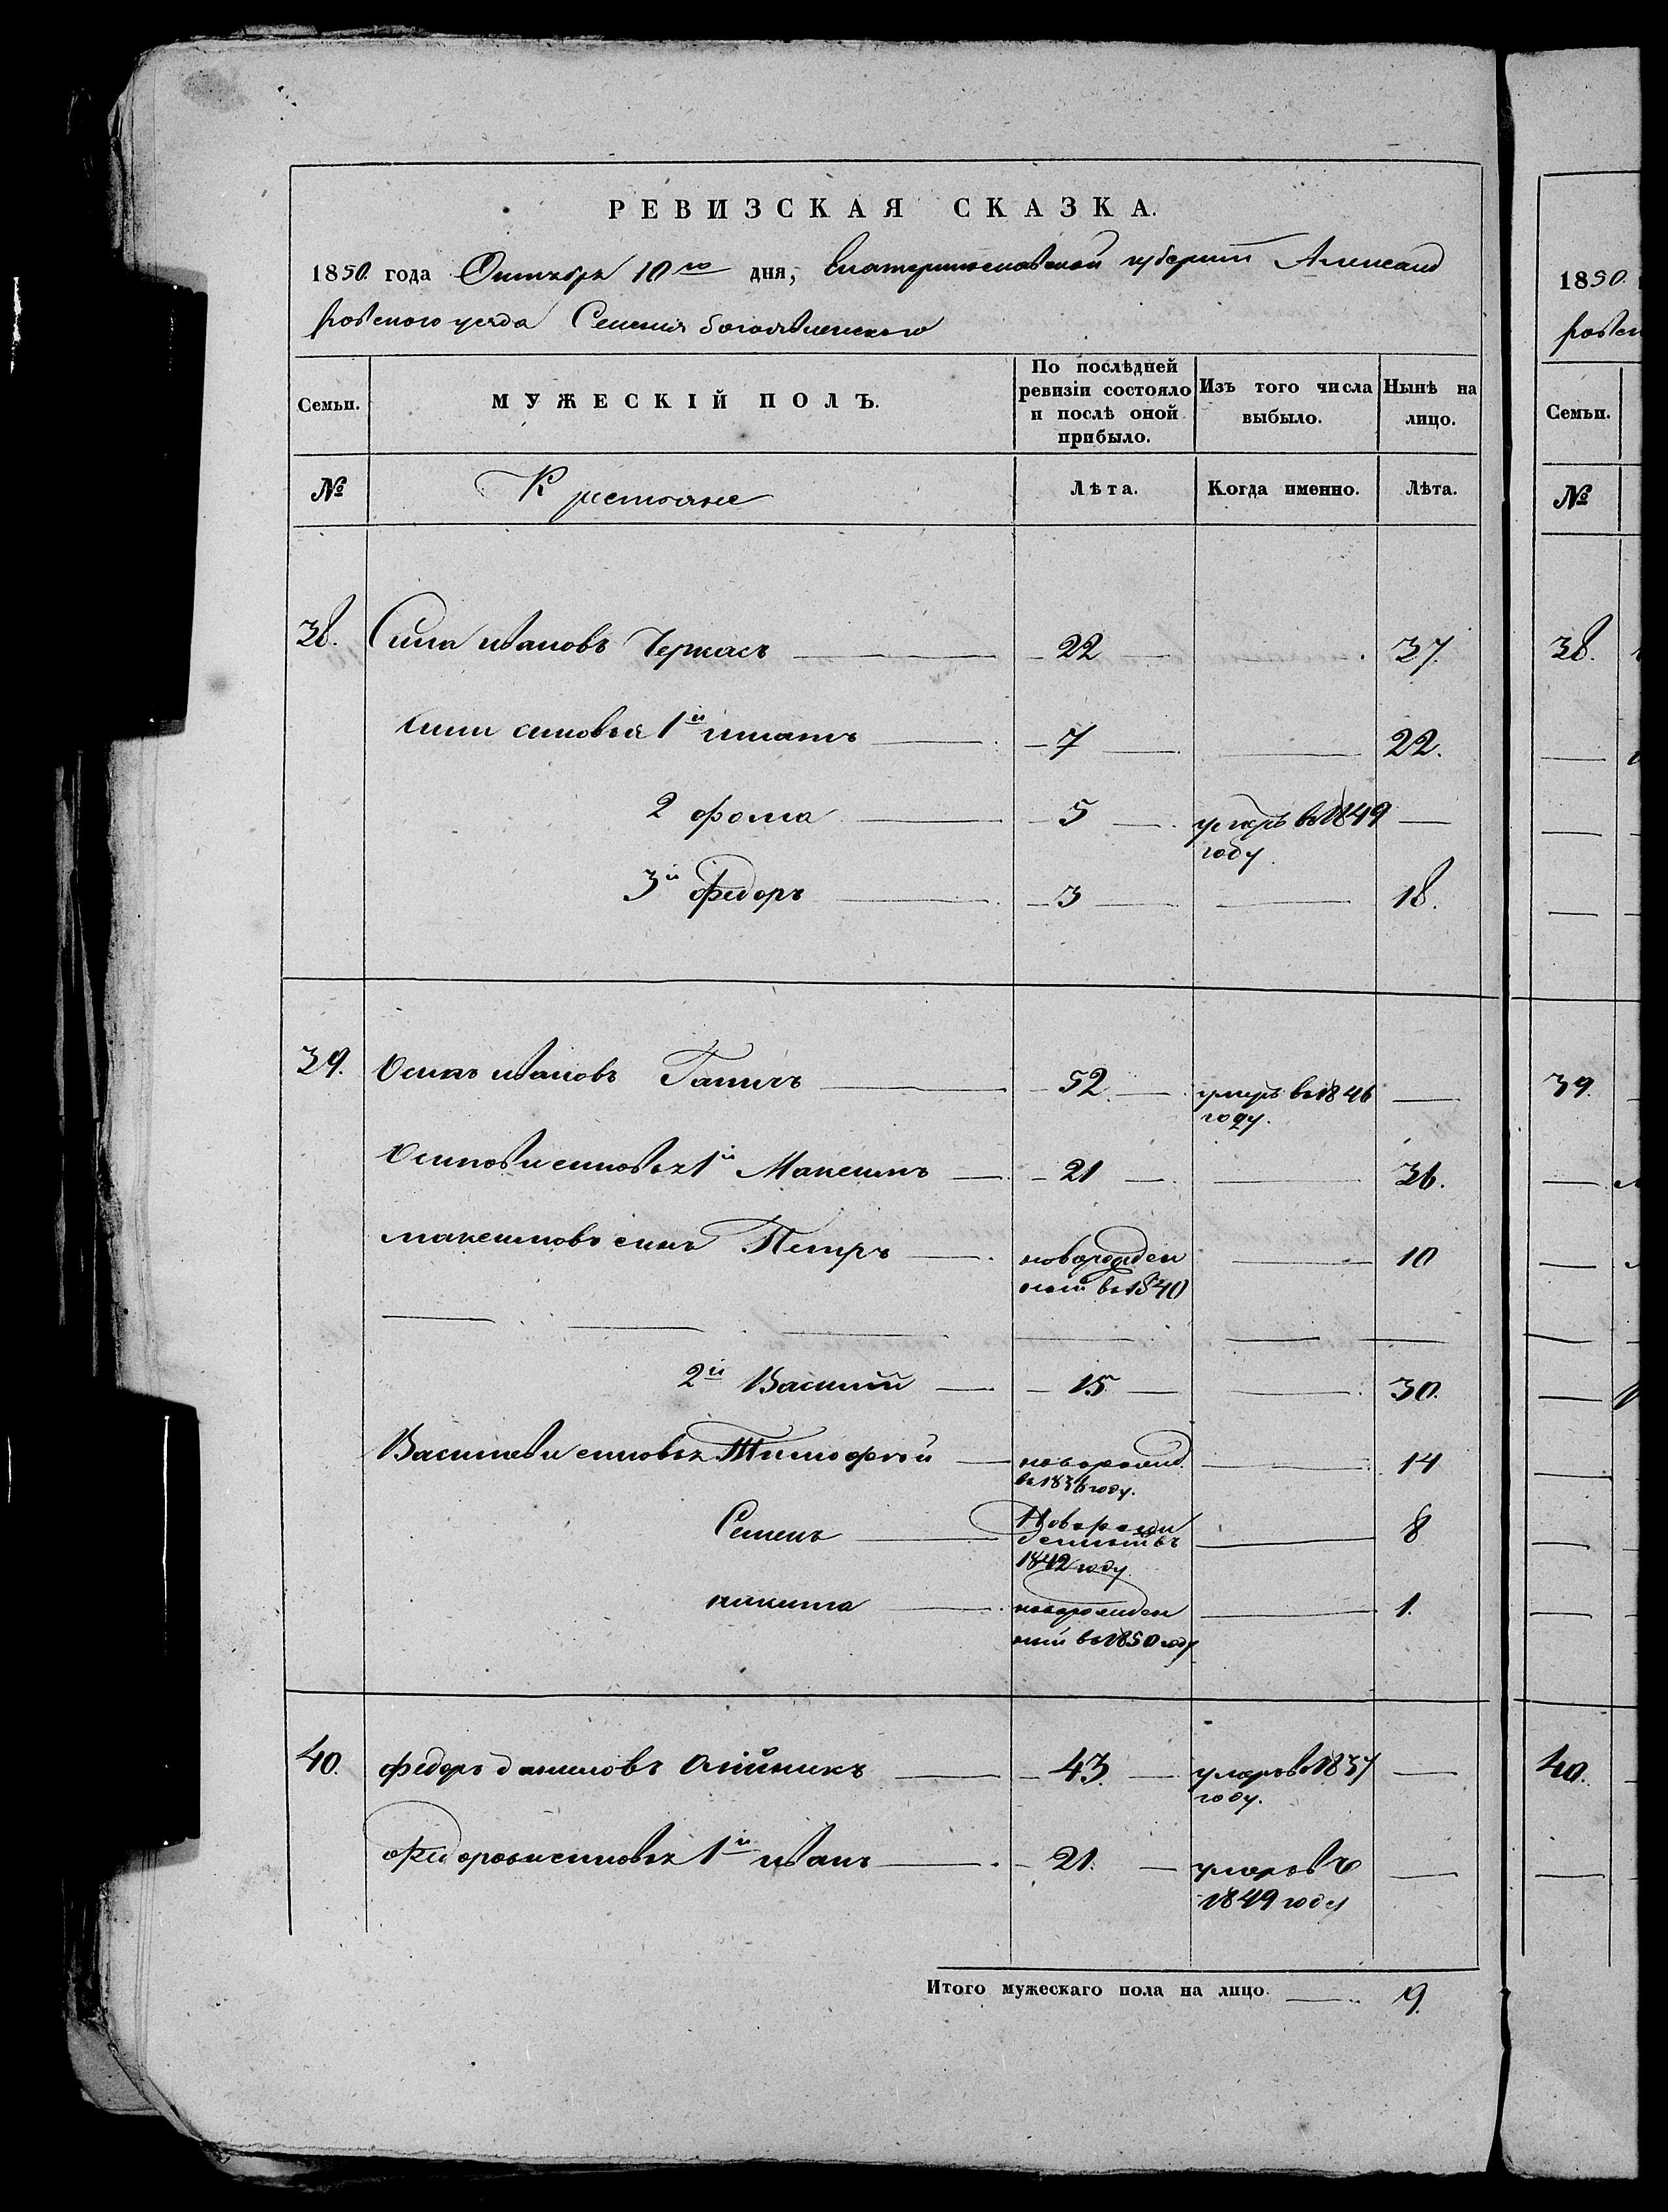 РЕВИЗСКАЯ СКАЗКА.
1850. года Октября 10го дня, Екатеринославской губернии Александ
ровского уезда Селения богоявленского
Семьи.
МУЖЕСКІЙ ПОЛЪ.
По послѣдней ревизіи состояло и послѣ оной прибыло.
Изъ того числа выбыло.
Нынѣ на лицо.
№ Крестьяне Лѣта. Когда именно. Лѣта.
38. Сила ивановъ Черкасъ 22 37.
Силы сыновья 1й игнатъ 7 22.
2 фома 5 умеръ въ 1849 году —
3й федоръ 3 18.
39. Осипъ ивановъ 52. умеръ въ 1846 году. —
Осиповы сыновья 1й Максимъ 21 36.
максимовъ сынъ Петръ новорожден
ный въ 1840 10
2й Василий 15 30.
Васильевы сыновья Тимофей новорожд.
въ 1836 году. 14
Семенъ Новорожденный въ
1842 году 8
никита новорожден
ный въ 1850 году 1.
40. федоръ даниловъ Олійникъ 43. умеръ въ 1837 году. —
Федоровы сыновья 1й иванъ 21. умеръ въ
1849 году —
Итого мужескаго пола на лицо. 9.
1850.
ровск
Семьи.
№
38.
39.
40.